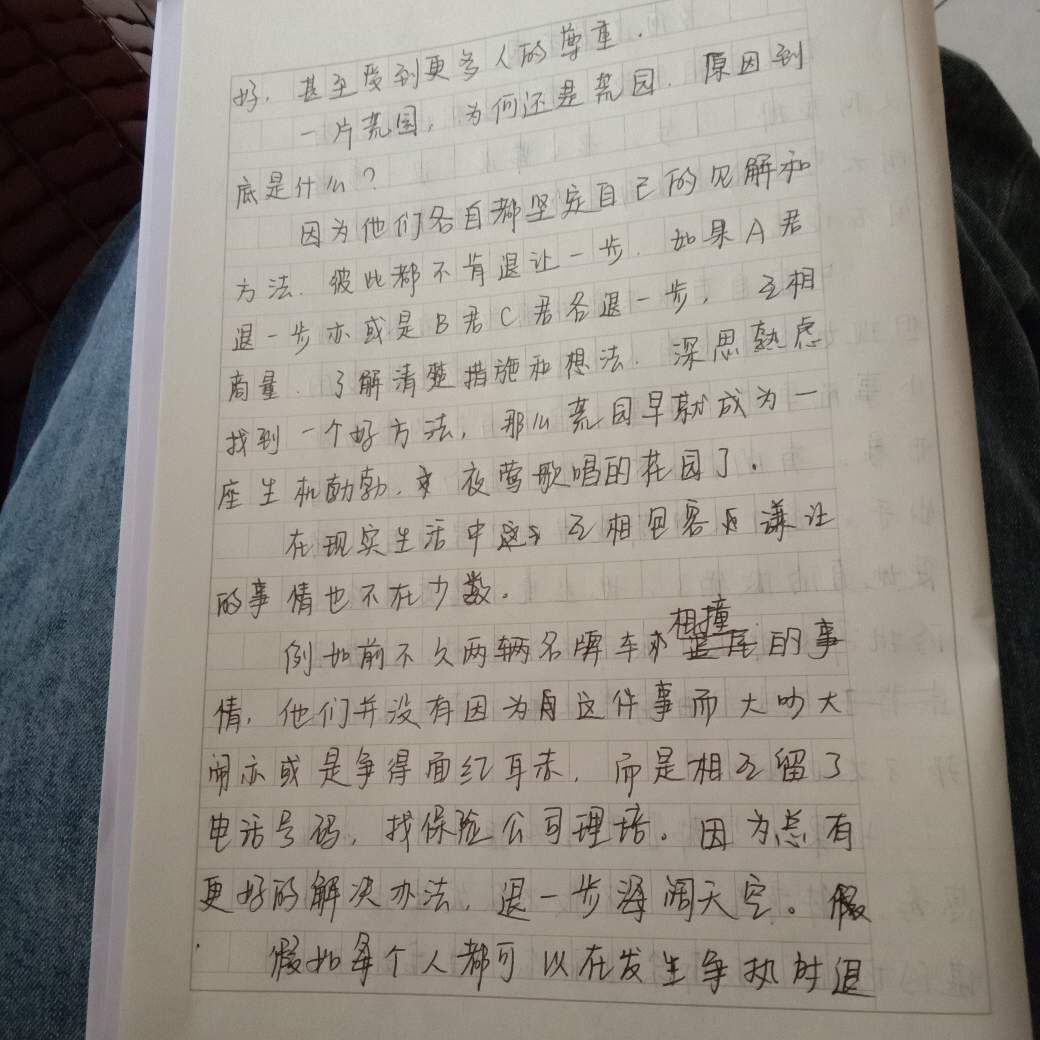 好，甚至受到更多人的尊重．
一片荒园，为何还是荒园．原因到
底是什么？
因为他们各自都坚定自己的见解和
方法．彼此都不肯退让一步．如果A君
退一步亦或是B君C君各退一步，互相
商量．了解清楚措施和想法．深思熟虑
找到一个好方法，那么荒园早就成为一
座生机勃勃．夜莺歌唱的花园了。
在现实生活中互相包容谦让
的事情也不在少数。
例如前不久两辆名牌车相撞的事
情，他们并没有因为这件事而大吵大
闹亦或是争得面红耳赤．而是相互留了
电话号码，找保险公司理培。因为总有
更好的解决办法．退一步海阔天空。
假如每个人都可以在发生争执时退